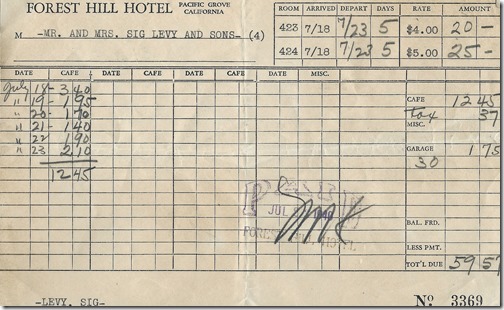 FOREST HILL HOTEL PACIFIC GROVE CALIFORNIA
M -MR. AND MRS. SIG LEVY AND SONS- (4)
ROOM ARRIVED DEPART DAYS RATE AMOUNT
423 7/18 7/23 5 $4.00 20 -
424 7/18 7/23 5 $5.00 25 -
DATE CAFE DATE DATE DATE MISC.
July 18 - 3 40
" 19 - 1 95
" 20 - 1 70
" 21 - 1 40
" 22 1 90
" 23 2 10
12 45
CAFE 12 45
tax 37
MISC.
GARAGE 1 75
30
PAID
JUL
FOREST HILL HOTEL
BAL. FRD.
LESS PMT.
TOT'L DUE 59 57
-LEVY, SIG-
No 3369